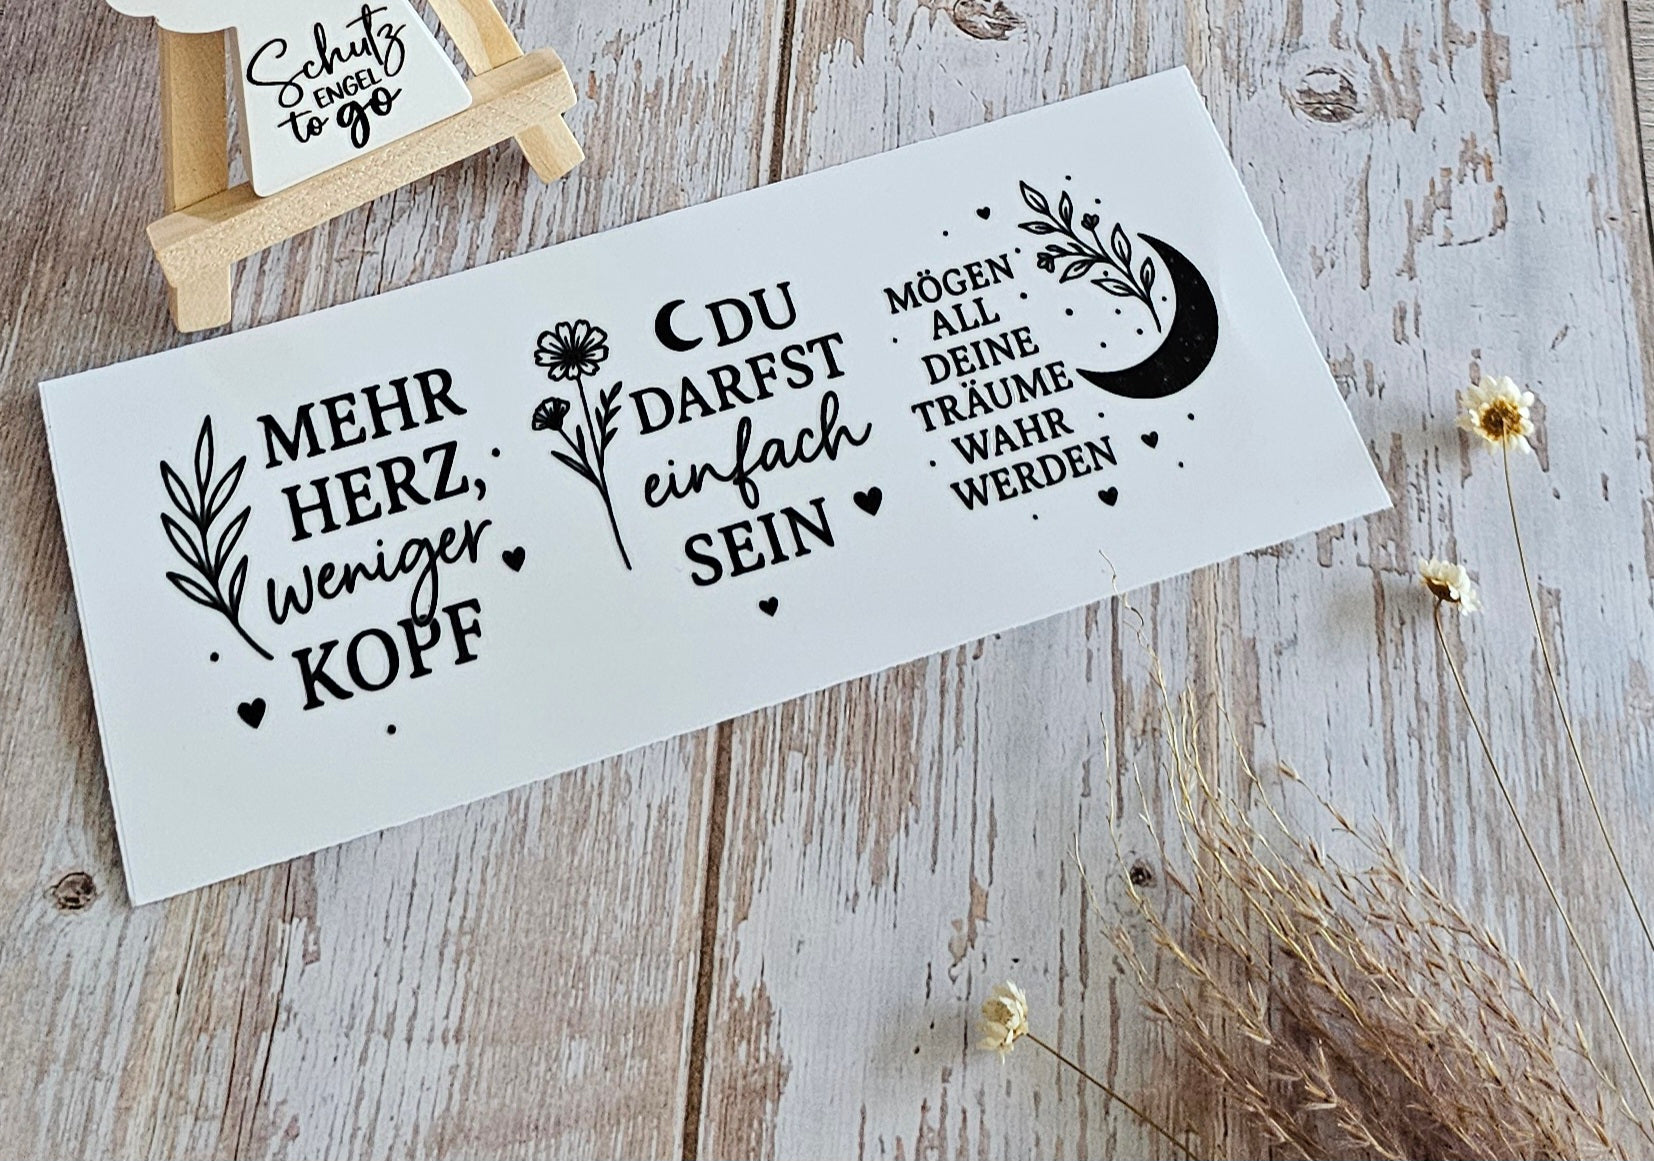 Schutz
ENGEL
to go
MEHR
HERZ,
weniger
KOPF
DU
DARFST
einfach
SEIN
MÖGEN
ALL
DEINE
TRÄUME
WAHR
WERDEN